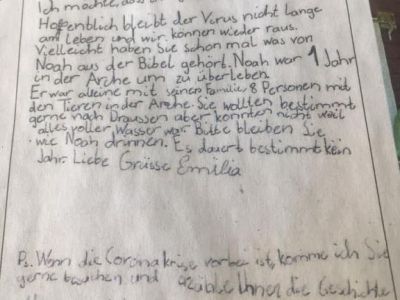 Ich möchte, das
Hoffentlich bleibt der Virus nicht lange
am leben und wir können wieder raus.
Vielleicht haben Sie schon mal was von
Noah aus der Bibel gehört. Noah war 1 Jahr
in der Arche um zu überleben.
Er war alleine mit seinen Familie, 8 Personen mit
den Tieren in der Arche. Sie wollten bestimmt
gerne nach Draussen aber konnten nicht weil
alles voller Wasser war. Bitte bleiben Sie
wie Noah drinnen. Es dauert bestimmt kein
Jahr. Liebe Grüsse Emilia
Ps. Wenn die Coronakrise vorbei ist, komme ich Sie
gerne besuchen und erzähle Ihnen die Geschichte